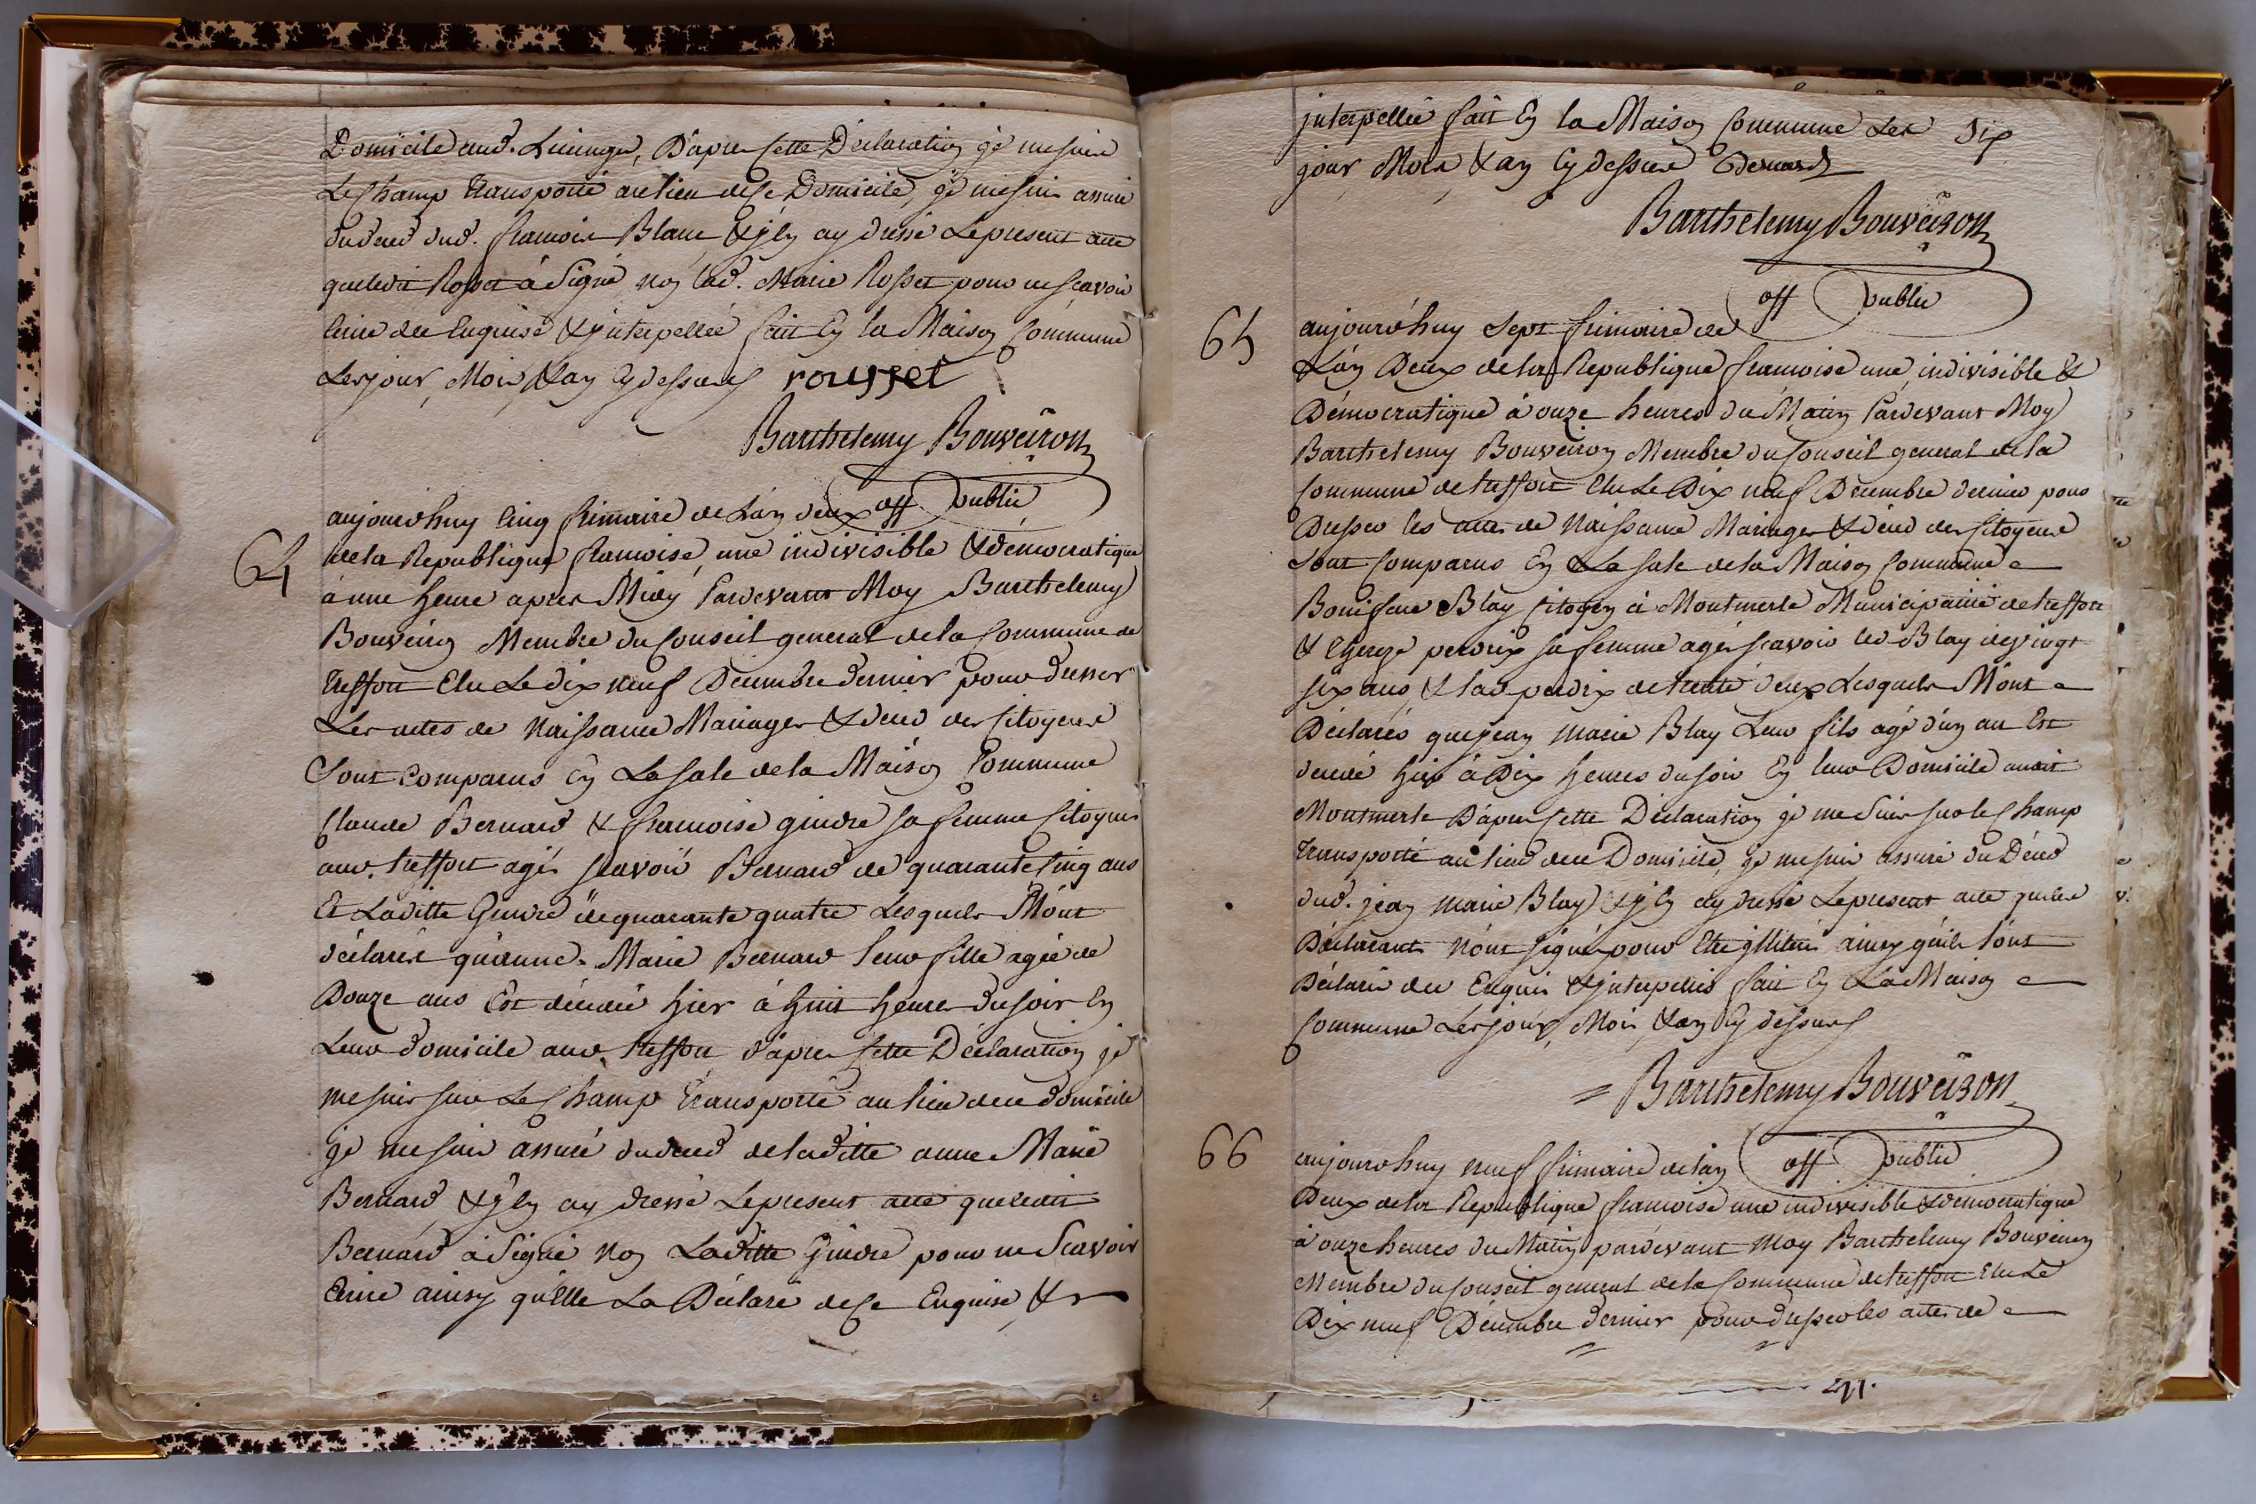 Domicile aud. Lucinges, D'apres Cette Déclaration je me suis
Le Champ transporté au lieu de Ce Domicile, je me suis assuré
du deced dud. francois Blanc & j'en ay dressé Le present acte
que ledit Rosset à Signé non lad. Marie Rosset pour ne scavoir
Ecrire de Ce Enquise & jnterpellée fait En la Maison Commune
Les jour, Mois, & an Cy dessus rousset
Barthelemy Bouveiron
off public
64
aujourd'huy Cinq frimaire de L'an deux
de la Republique francoise, une indivisible & démocratique
à une heure apres Midy Pardevant Moy Barthelemy
Bouveiron Membre du Conseil general de la Commune de
treffort Elu Le dix neuf Decembre dernier pour dresser
Les actes de Naissance Mariages & deced des Citoyens
Sont Comparus En La sale de la Maison Commune
Claude Bernard & francoise guidre sa femme Citoyens
aud. treffort agés scavoir Bernard de quarante Cinq ans
Et Laditte Guidre de quarante quatre Lesquels M'ont
déclarés qu'anne Marie Bernard leur fille agée de
Douze ans Est décedée hier à huit heures du soir En
Leur domicile aud. treffort d'apres Cette Déclaration je
me suis sur Le Champ transporté au lieu de ce domicile
je me suis assuré du deced de laditte anne Marie
Bernard & j'en ay dressé Le present acte que ledit
Bernard à Signé Non Laditte Guidre pour ne Scavoir
Ecrire ainsy qu'Elle La Déclaré de Ce Enquise, &
jnterpellée fait En la Maison Commune Les dix
jour Mois & an Cy dessus Bernard
Barthelemy Bouveiron
off public
65
aujourd'huy Sept frimaire de
L'an Deux de la Republique francoise une indivisible &
Démocratique à onze heures du Matin Pardevant Moy
Barthelemy Bouveiron Membre du Conseil general de la
Commune de treffort Elu Le Dix neuf Decembre dernier pour
Dresser les actes de Naissance Mariages & déced des Citoyens
Sont Comparus En La sale de la Maison Commune
Boniface Blay Citoyen à Montmerle Municipalité de treffort
& Thereze perdrix sa femme agés scavoir led Blay de vingt
six ans, & lad. perdrix de trente deux Lesquels M'ont
Déclarés que jean Marie Blay Leur fils agé d'un an Est
decedé hier à Dix heures du soir En leur Domicile audit
Montmerle D'apres Cette Déclaration je me Suis sur le Champ
transporté au lieu de ce Domicile, je me suis assuré du Déced
dud. jean Marie Blay & j'en ay dressé Le present acte que les
Déclarants N'ont signé pour Etre jllitérés ainsy qu'ils l'ont
Déclaré de ce Enquis & jnterpellés fait En La Maison
Commune Les jour, Mois, & an Cy dessus
Barthelemy Bouveiron
off public
66
aujourd'huy neuf frimaire de l'an
Deux de la Republique francoise une indivisible & démocratique
à onze heures du Matin pardevant Moy Barthelemy Bouveiron
Membre du Conseil general de la Commune de treffort Elu Le
Dix neuf Décembre dernier pour dresser les actes de